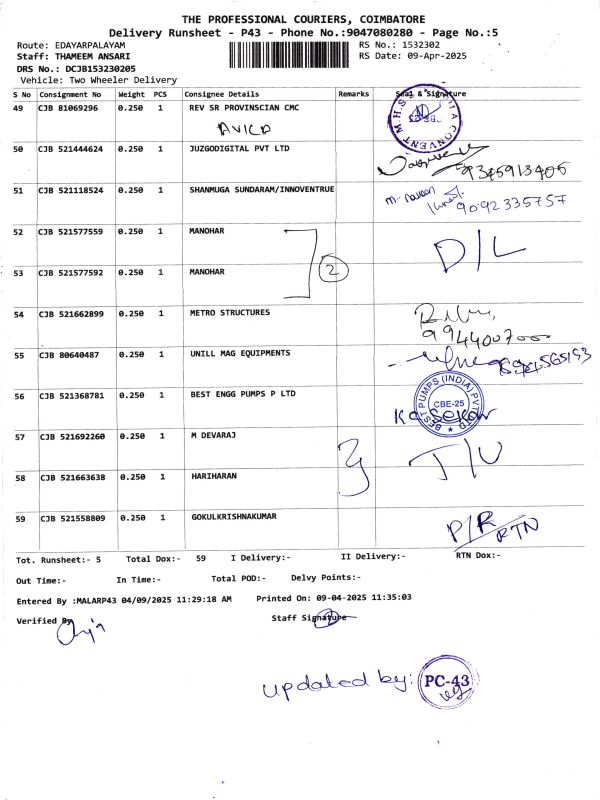 THE PROFESSIONAL COURIERS, COIMBATORE
Delivery Runsheet - P43 - Phone No.:9047080280 - Page No.:5
Route: EDAYARPALAYAM
Staff: THAMEEM ANSARI
DRS No.: DCJB153230205
Vehicle: Two Wheeler Delivery
RS No.: 1532302
RS Date: 09-Apr-2025
S No Consignment No Weight PCS Consignee Details Remarks Seal & Signature
49 CJB 81069296 0.250 1 REV SR PROVINSCIAN CMC
CONVENT M.H.S
50 CJB 521444624 0.250 1 JUZGODIGITAL PVT LTD
9345913405
51 CJB 521118524 0.250 1 SHANMUGA SUNDARAM/INNOVENTRUE
m. naveen
9092335757
52 CJB 521577559 0.250 1 MANOHAR
D/L
2
53 CJB 521577592 0.250 1 MANOHAR
54 CJB 521662899 0.250 1 METRO STRUCTURES
9944007000
55 CJB 80640487 0.250 1 UNILL MAG EQUIPMENTS
56 CJB 521368781 0.250 1 BEST ENGG PUMPS P LTD
BEST PUMPS (INDIA) PVT LTD
CBE-25
57 CJB 521692260 0.250 1 M DEVARAJ
58 CJB 521663638 0.250 1 HARIHARAN
59 CJB 521558809 0.250 1 GOKULKRISHNAKUMAR
P/R
RTN
Tot. Runsheet:- 5 Total Dox:- 59 I Delivery:- II Delivery:- RTN Dox:-
Out Time:- In Time:- Total POD:- Delvy Points:-
Entered By :MALARP43 04/09/2025 11:29:18 AM Printed On: 09-04-2025 11:35:03
Verified By Staff Signature
updated by: PC-43